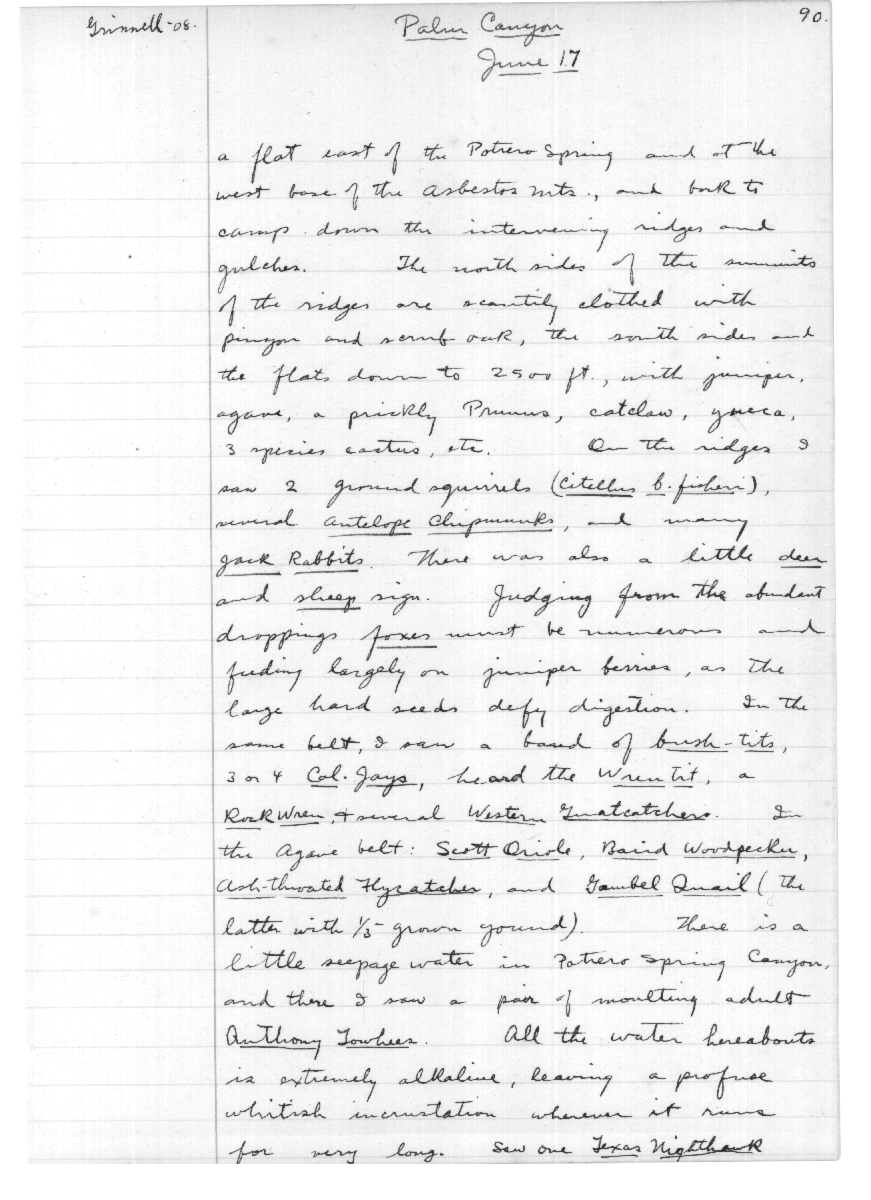 Grinnell-08.
90.
Palm Canyon
June 17
a flat east of the Potrero Spring and at the
west base of the Asbestos mts., and back to
camp down the intervening ridges and
gulches. The north sides of the summits
of the ridges are scantily clothed with
pinyon and scrub oak, the south sides and
the flats down to 2500 ft., with juniper,
agave, a prickly Prunus, catclaw, yucca,
3 species cactus, etc. On the ridges I
saw 2 ground squirrels (Citellus b. fisheri),
several Antelope Chipmunks, and many
Jack Rabbits. There was also a little deer
and sheep sign. Judging from the abundant
droppings foxes must be numerous and
feeding largely on juniper berries, as the
large hard seeds defy digestion. In the
same belt, I saw a band of bush-tits,
3 or 4 Cal. Jays, heard the Wren tit, a
Rock Wren, + several Western Gnatcatchers. In
the Agave belt: Scott Oriole, Baird Woodpecker,
Ash-throated Flycatcher, and Gambel Quail (the
latter with 1/3-grown yound). There is a
little seepage water in Potrero Spring Canyon,
and there I saw a pair of moulting adult
Anthony Towhees. All the water hereabouts
is extremely alkaline, leaving a profuse
whitish incrustation wherever it runs
for very long. Saw one Texas Nighthawk